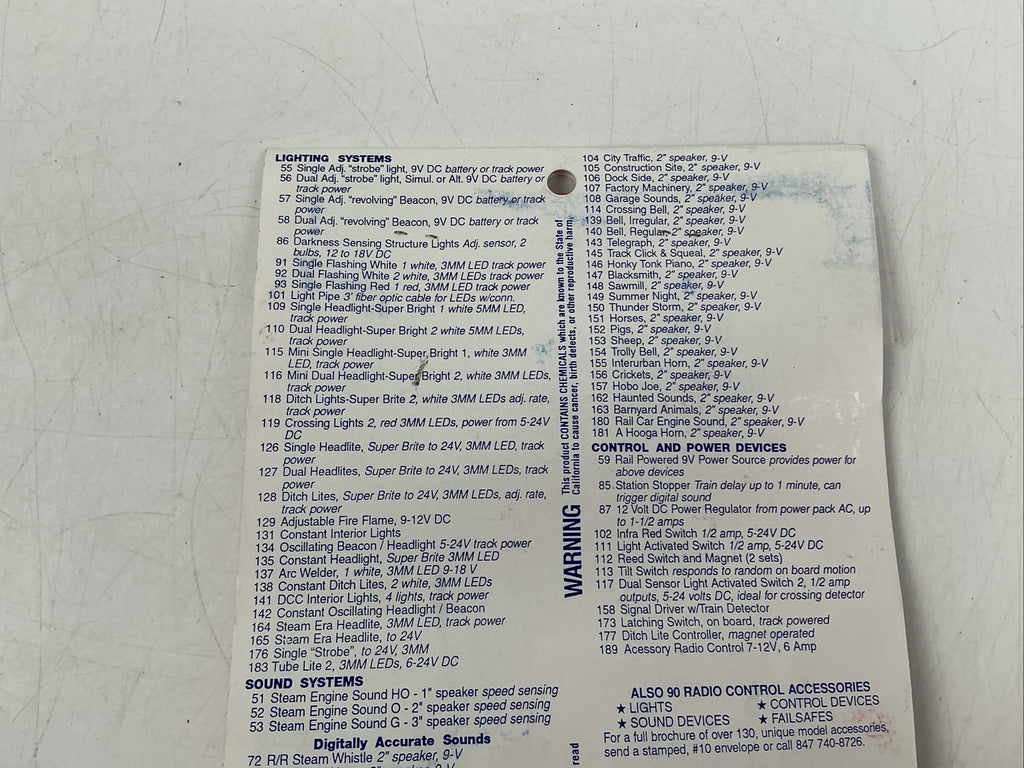 LIGHTING SYSTEMS
55 Single Adj. "strobe" light, 9V DC battery or track power
56 Dual Adj. "strobe" light, Simul. or Alt. 9V DC battery or
track power
57 Single Adj. "revolving" Beacon, 9V DC battery or track
power
58 Dual Adj. "revolving" Beacon, 9V DC battery or track
power
86 Darkness Sensing Structure Lights Adj. sensor, 2
bulbs, 12 to 18V DC
91 Single Flashing White 1 white, 3MM LED track power
92 Dual Flashing White 2 white, 3MM LEDs track power
93 Single Flashing Red 1 red, 3MM LED track power
101 Light Pipe 3' fiber optic cable for LEDs w/conn.
109 Single Headlight-Super Bright 1 white 5MM LED,
track power
110 Dual Headlight-Super Bright 2 white 5MM LEDs,
track power
115 Mini Single Headlight-Super Bright 1, white 3MM
LED, track power
116 Mini Dual Headlight-Super Bright 2, white 3MM LEDs,
track power
118 Ditch Lights-Super Brite 2, white 3MM LEDs adj. rate,
track power
119 Crossing Lights 2, red 3MM LEDs, power from 5-24V
DC
126 Single Headlite, Super Brite to 24V, 3MM LED, track
power
127 Dual Headlites, Super Brite to 24V, 3MM LEDs, track
power
128 Ditch Lites, Super Brite to 24V, 3MM LEDs, adj. rate,
track power
129 Adjustable Fire Flame, 9-12V DC
131 Constant Interior Lights
134 Oscillating Beacon / Headlight 5-24V track power
135 Constant Headlight, Super Brite 3MM LED
137 Arc Welder, 1 white, 3MM LED 9-18 V
138 Constant Ditch Lites, 2 white, 3MM LEDs
141 DCC Interior Lights, 4 lights, track power
142 Constant Oscillating Headlight / Beacon
164 Steam Era Headlite, 3MM LED, track power
165 Steam Era Headlite, to 24V
176 Single "Strobe", to 24V, 3MM
183 Tube Lite 2, 3MM LEDs, 6-24V DC
SOUND SYSTEMS
51 Steam Engine Sound HO - 1" speaker speed sensing
52 Steam Engine Sound O - 2" speaker speed sensing
53 Steam Engine Sound G - 3" speaker speed sensing
Digitally Accurate Sounds
72 R/R Steam Whistle 2" speaker, 9-V
WARNING This product CONTAINS CHEMICALS which are known to the State of
California to cause cancer, birth defects, or other reproductive harm.
read
104 City Traffic, 2" speaker, 9-V
105 Construction Site, 2" speaker, 9-V
106 Dock Side, 2" speaker, 9-V
107 Factory Machinery, 2" speaker, 9-V
108 Garage Sounds, 2" speaker, 9-V
114 Crossing Bell, 2" speaker, 9-V
139 Bell, Irregular, 2" speaker, 9-V
140 Bell, Regular, 2" speaker, 9-V
143 Telegraph, 2" speaker, 9-V
145 Track Click & Squeal, 2" speaker, 9-V
146 Honky Tonk Piano, 2" speaker, 9-V
147 Blacksmith, 2" speaker, 9-V
148 Sawmill, 2" speaker, 9-V
149 Summer Night, 2" speaker, 9-V
150 Thunder Storm, 2" speaker, 9-V
151 Horses, 2" speaker, 9-V
152 Pigs, 2" speaker, 9-V
153 Sheep, 2" speaker, 9-V
154 Trolly Bell, 2" speaker, 9-V
155 Interurban Horn, 2" speaker, 9-V
156 Crickets, 2" speaker, 9-V
157 Hobo Joe, 2" speaker, 9-V
162 Haunted Sounds, 2" speaker, 9-V
163 Barnyard Animals, 2" speaker, 9-V
180 Rail Car Engine Sound, 2" speaker, 9-V
181 A Hooga Horn, 2" speaker, 9-V
CONTROL AND POWER DEVICES
59 Rail Powered 9V Power Source provides power for
above devices
85 Station Stopper Train delay up to 1 minute, can
trigger digital sound
87 12 Volt DC Power Regulator from power pack AC, up
to 1-1/2 amps
102 Infra Red Switch 1/2 amp, 5-24V DC
111 Light Activated Switch 1/2 amp, 5-24V DC
112 Reed Switch and Magnet (2 sets)
113 Tilt Switch responds to random on board motion
117 Dual Sensor Light Activated Switch 2, 1/2 amp
outputs, 5-24 volts DC, ideal for crossing detector
158 Signal Driver w/Train Detector
173 Latching Switch, on board, track powered
177 Ditch Lite Controller, magnet operated
189 Acessory Radio Control 7-12V, 6 Amp
ALSO 90 RADIO CONTROL ACCESSORIES
★ LIGHTS ★ CONTROL DEVICES
★ SOUND DEVICES ★ FAILSAFES
For a full brochure of over 130, unique model accessories,
send a stamped, #10 envelope or call 847 740-8726.